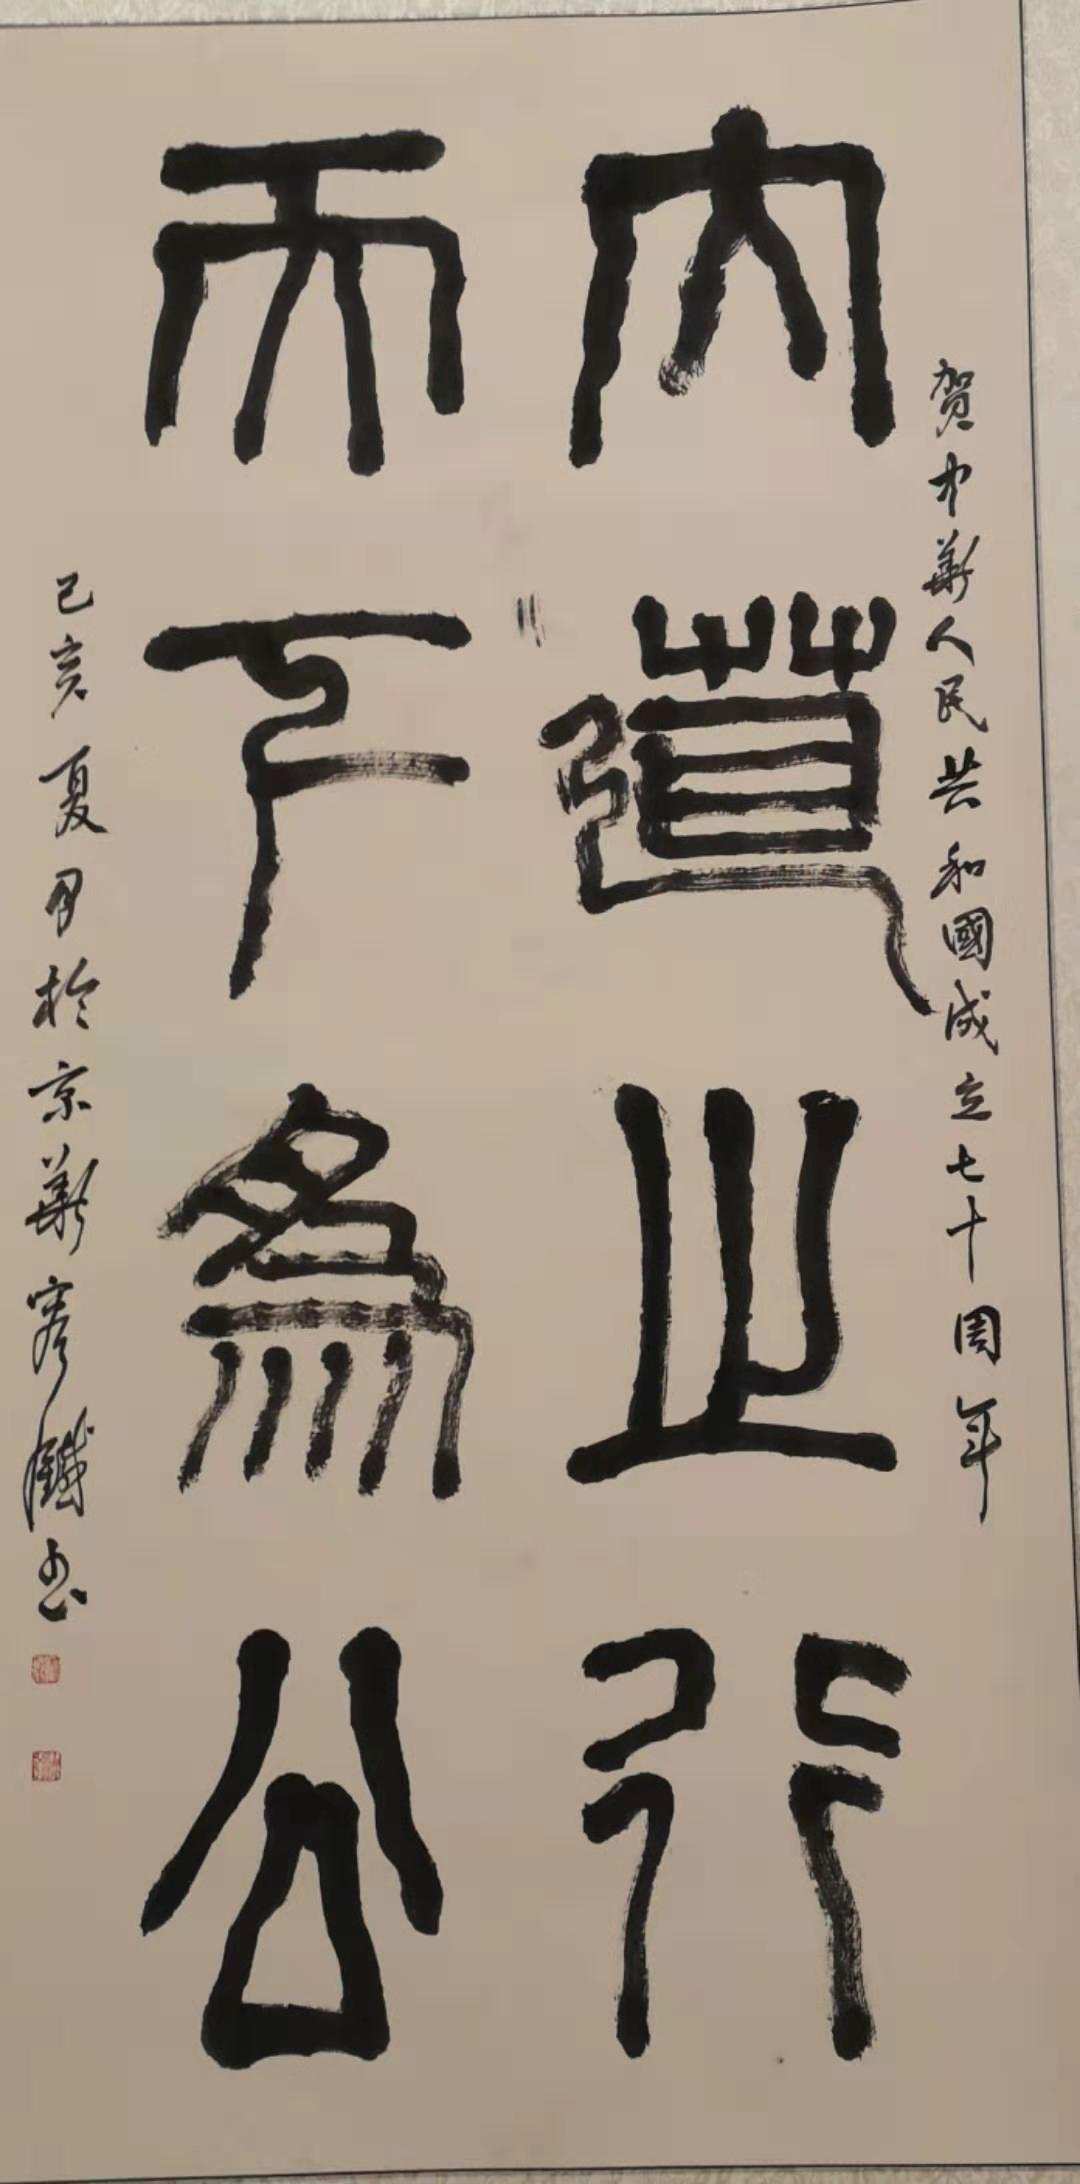 贺中華人民共和國成立七十周年
大道之行
天下為公
己亥夏月於京華鐵书